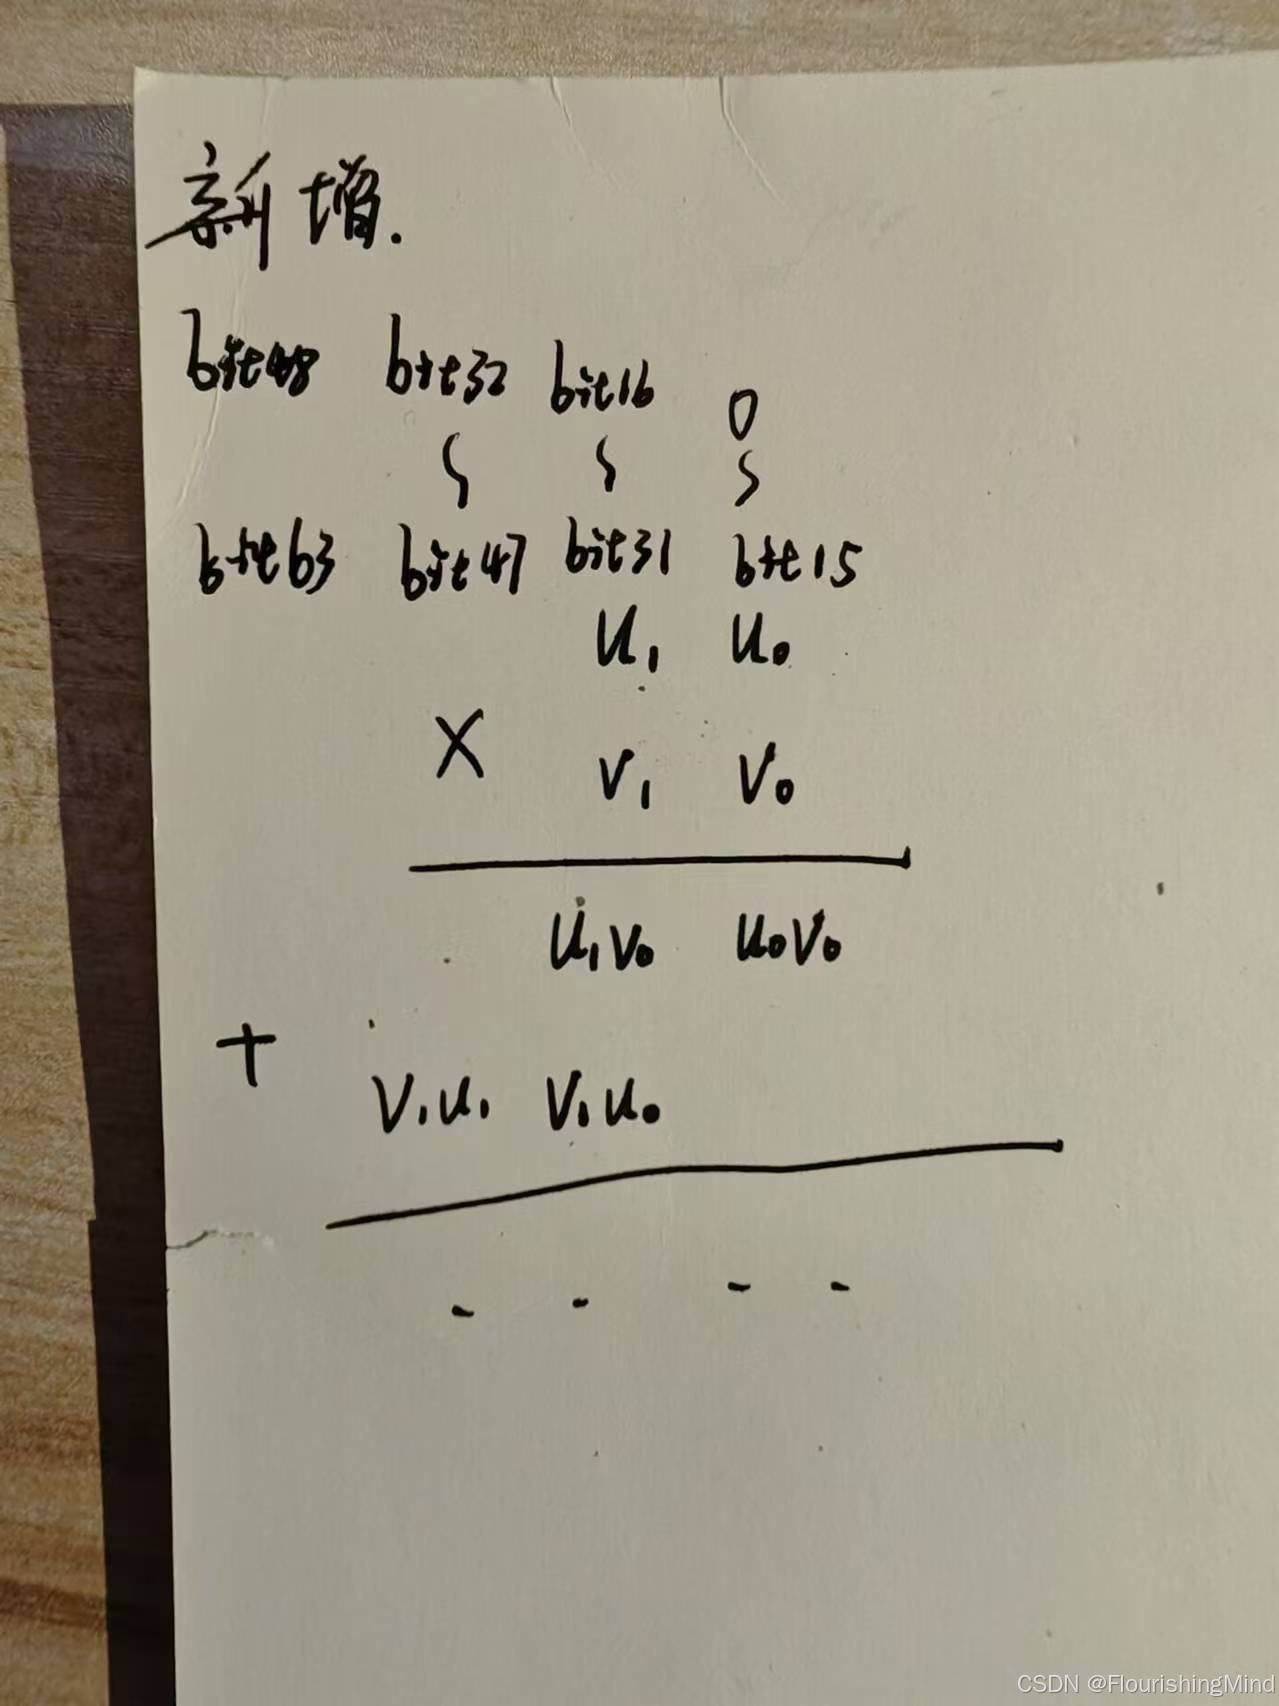 新增.
bit48 bit32 bit16 0
bit63 bit47 bit31 bit15
u₁ u₀
× v₁ v₀
u₁v₀ u₀v₀
+
v₁u₁ v₁u₀
- - - -
CSDN @FlourishingMind